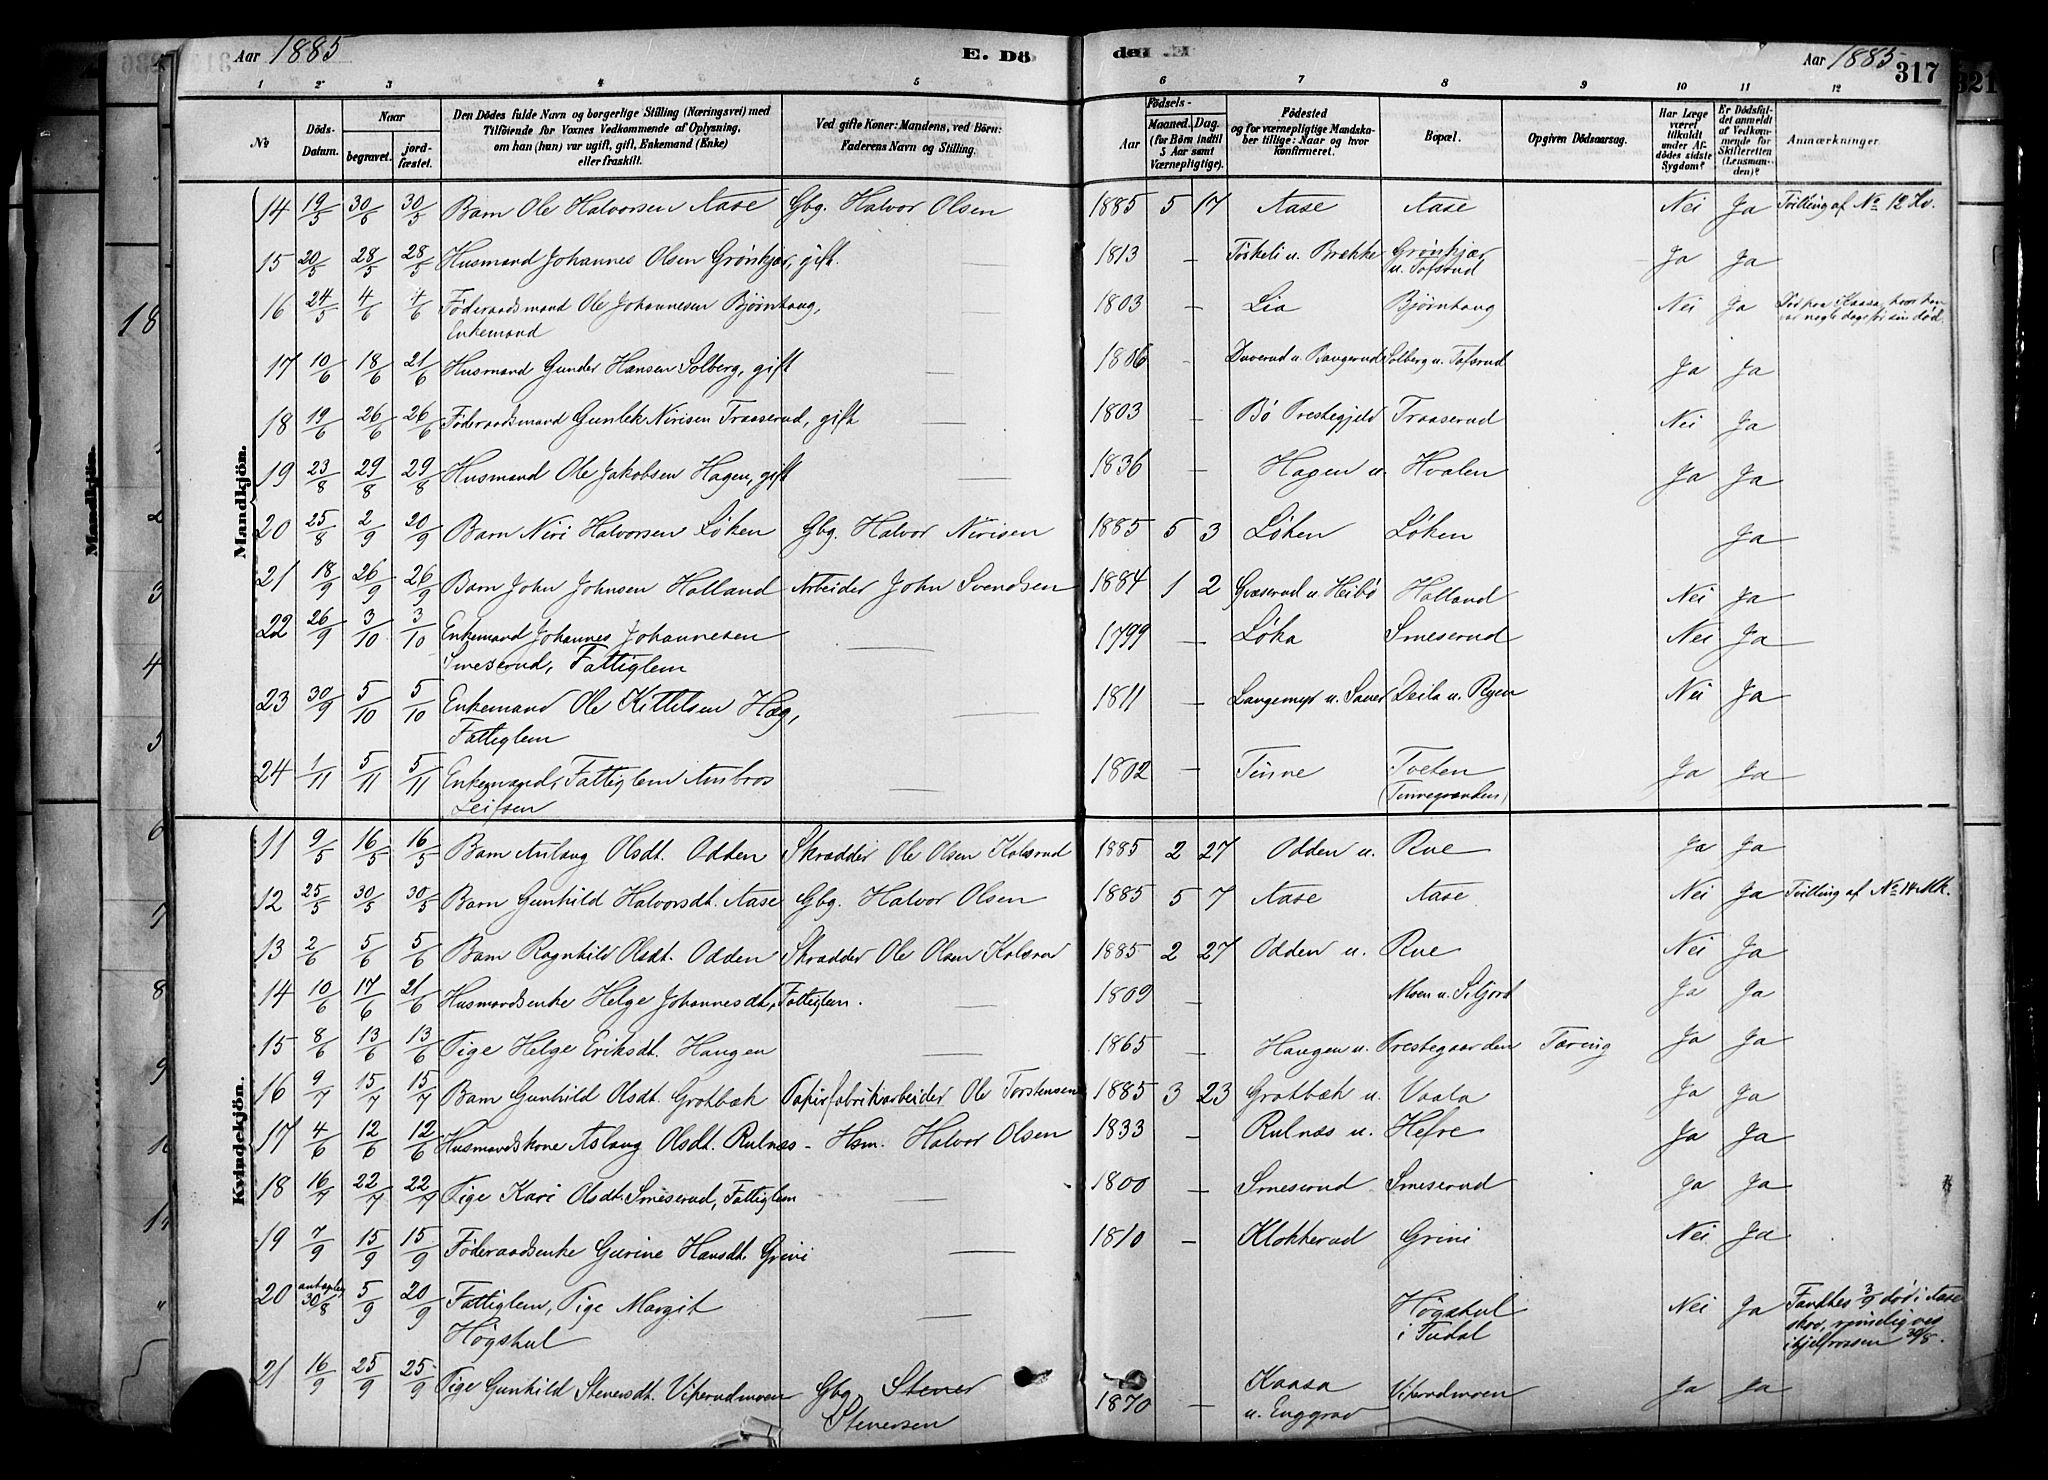 Aar 1885 E. Dö den E Aar 1885 317
1 2 3 4 5 6 7 8 9 10 11 12
№ Döds-Datum. Naar begravet. jordfæstet. Den Dödes fulde Navn og borgerlige Stilling (Næringsvei) med Tilföiende for Voxnes Vedkommende af Oplysning, om han (hun) var ugift, gift, Enkemand (Enke) eller fraskilt. Ved gifte Koner: Mandens, ved Börn: Faderens Navn og Stilling. Födsels- Aar Maaned. Dag. (for Börn indtil 5 Aar samt Værnepligtige). Födested og for værnepligtige Mandskaber tillige: Naar og hvor konfirmeret. Bopæl. Opgiven Dödsaarsag. Har Læge været tilkaldt under Afdödes sidste Sygdom? Er Dödsfaldet anmeldt af Vedkommende for Skifteretten (Lensmanden)? Anmærkninger.
Mandkjön.
14 19/5 30/5 30/5 Barn Ole Halvorsen Aase Gbg. Halvor Olsen 1885 5 17 Aase Aase Nei Ja Tvilling af No 12 Kv.
15 20/5 28/5 28/5 Husmand Johannes Olsen Grønkjær, gift. — 1813 — Torkeli u. Brække Grønkjær u. Tofsrud Ja Ja
16 24/5 4/6 4/6 Føderaadsmand Ole Johannesen Bjørnhaug, Enkemand — 1803 — Lia Bjørnhaug Nei Ja Død paa Kaasa, hvor han var nogle dage før sin død.
17 10/6 18/6 21/6 Husmand Gunder Hansen Solberg, gift — 1806 — Duverud u. Bangerud Solberg u. Tofsrud Ja Ja
18 19/6 26/6 26/6 Føderaadsmand Gunlek Nirisen Traaserud, gift — 1803 — Bø Prestegjeld Traaserud Nei Ja
19 23/8 29/8 29/8 Husmand Ole Jakobsen Hagen, gift — 1836 — Hagen u. Hvalen Ja Ja
20 25/8 2/9 20/9 Barn Niri Halvorsen Løken Gbg. Halvor Nirisen 1885 5 3 Løken Løken Ja
21 18/9 26/9 26/9 Barn John Johnsen Holland Arbeider John Svendsen 1884 1 2 Gvæserud u Heibø Holland Nei Ja
22 26/9 3/10 3/10 Enkemand Johannes Johannesen Smeserud, Fattiglem — 1799 — Løka Smeserud Nei Ja
23 30/9 5/10 5/10 Enkemand Ole Kittelsen Hæg, Fattiglem — 1811 — Langemyr u. Sauer Deila u. Ryen Nei Ja
24 1/11 5/11 5/11 Enkemand, Fattiglem Ambros Leifsen — 1802 — Tinne Tveten (Tinnegranden) Ja Ja
Kvindekjön.
11 9/5 16/5 16/5 Barn Aslaug Olsdt. Odden Skrædder Ole Olsen Kolsrud 1885 2 27 Odden u. Rue Ja Ja
12 25/5 30/5 30/5 Barn Gunhild Halvorsdt. Aase Gbg. Halvor Olsen 1885 5 7 Aase Aase Nei Ja Tvilling af No 14 Mk.
13 2/6 5/6 5/6 Barn Ragnhild Olsdt. Odden Skrædder Ole Olsen Kolsrud 1885 2 27 Odden u. Rue Nei Ja
14 10/6 17/6 21/6 Husmandsenke Helge Johannesdt., Fattiglem. — 1809 — Moen u. Siljord Ja Ja
15 8/6 13/6 13/6 Pige Helge Eriksdt. Haugen — 1865 — Haugen u. Prestegaarden Tæring Ja Ja
16 9/7 15/7 15/7 Barn Gunhild Olsdt. Grotbæk Papirfabrikarbeider Ole Torstensen 1885 3 23 Grotbæk u. Vaala Ja Ja
17 4/6 12/6 12/6 Husmandskone Aslaug Olsdt. Rulnæs - Hsm. Halvor Olsen 1833 — Rulnæs u. Hefre Ja Ja
18 16/7 22/7 22/7 Pige Kari Olsdt. Smeserud, Fattiglem — 1800 — Smeserud Smeserud Ja Ja
19 7/9 15/9 15/9 Føderaadsenke Gurine Hansdt. Grini — 1810 — Klokkerud Grini Nei Ja
20 antagelig 30/8 5/9 20/9 Fattiglem, Pige Margit Høgskul — Høgskul i Tudal Nei Ja Fandtes 3/9 død i Aase skov, rimeligvis ihjelfrossen 30/8.
21 16/9 25/9 25/9 Pige Gunhild Stenersdt. Vikerudmoen Gbg. Stener Stenersen 1870 — Kaasa u. Enggrav Vikerudmoen Ja Ja